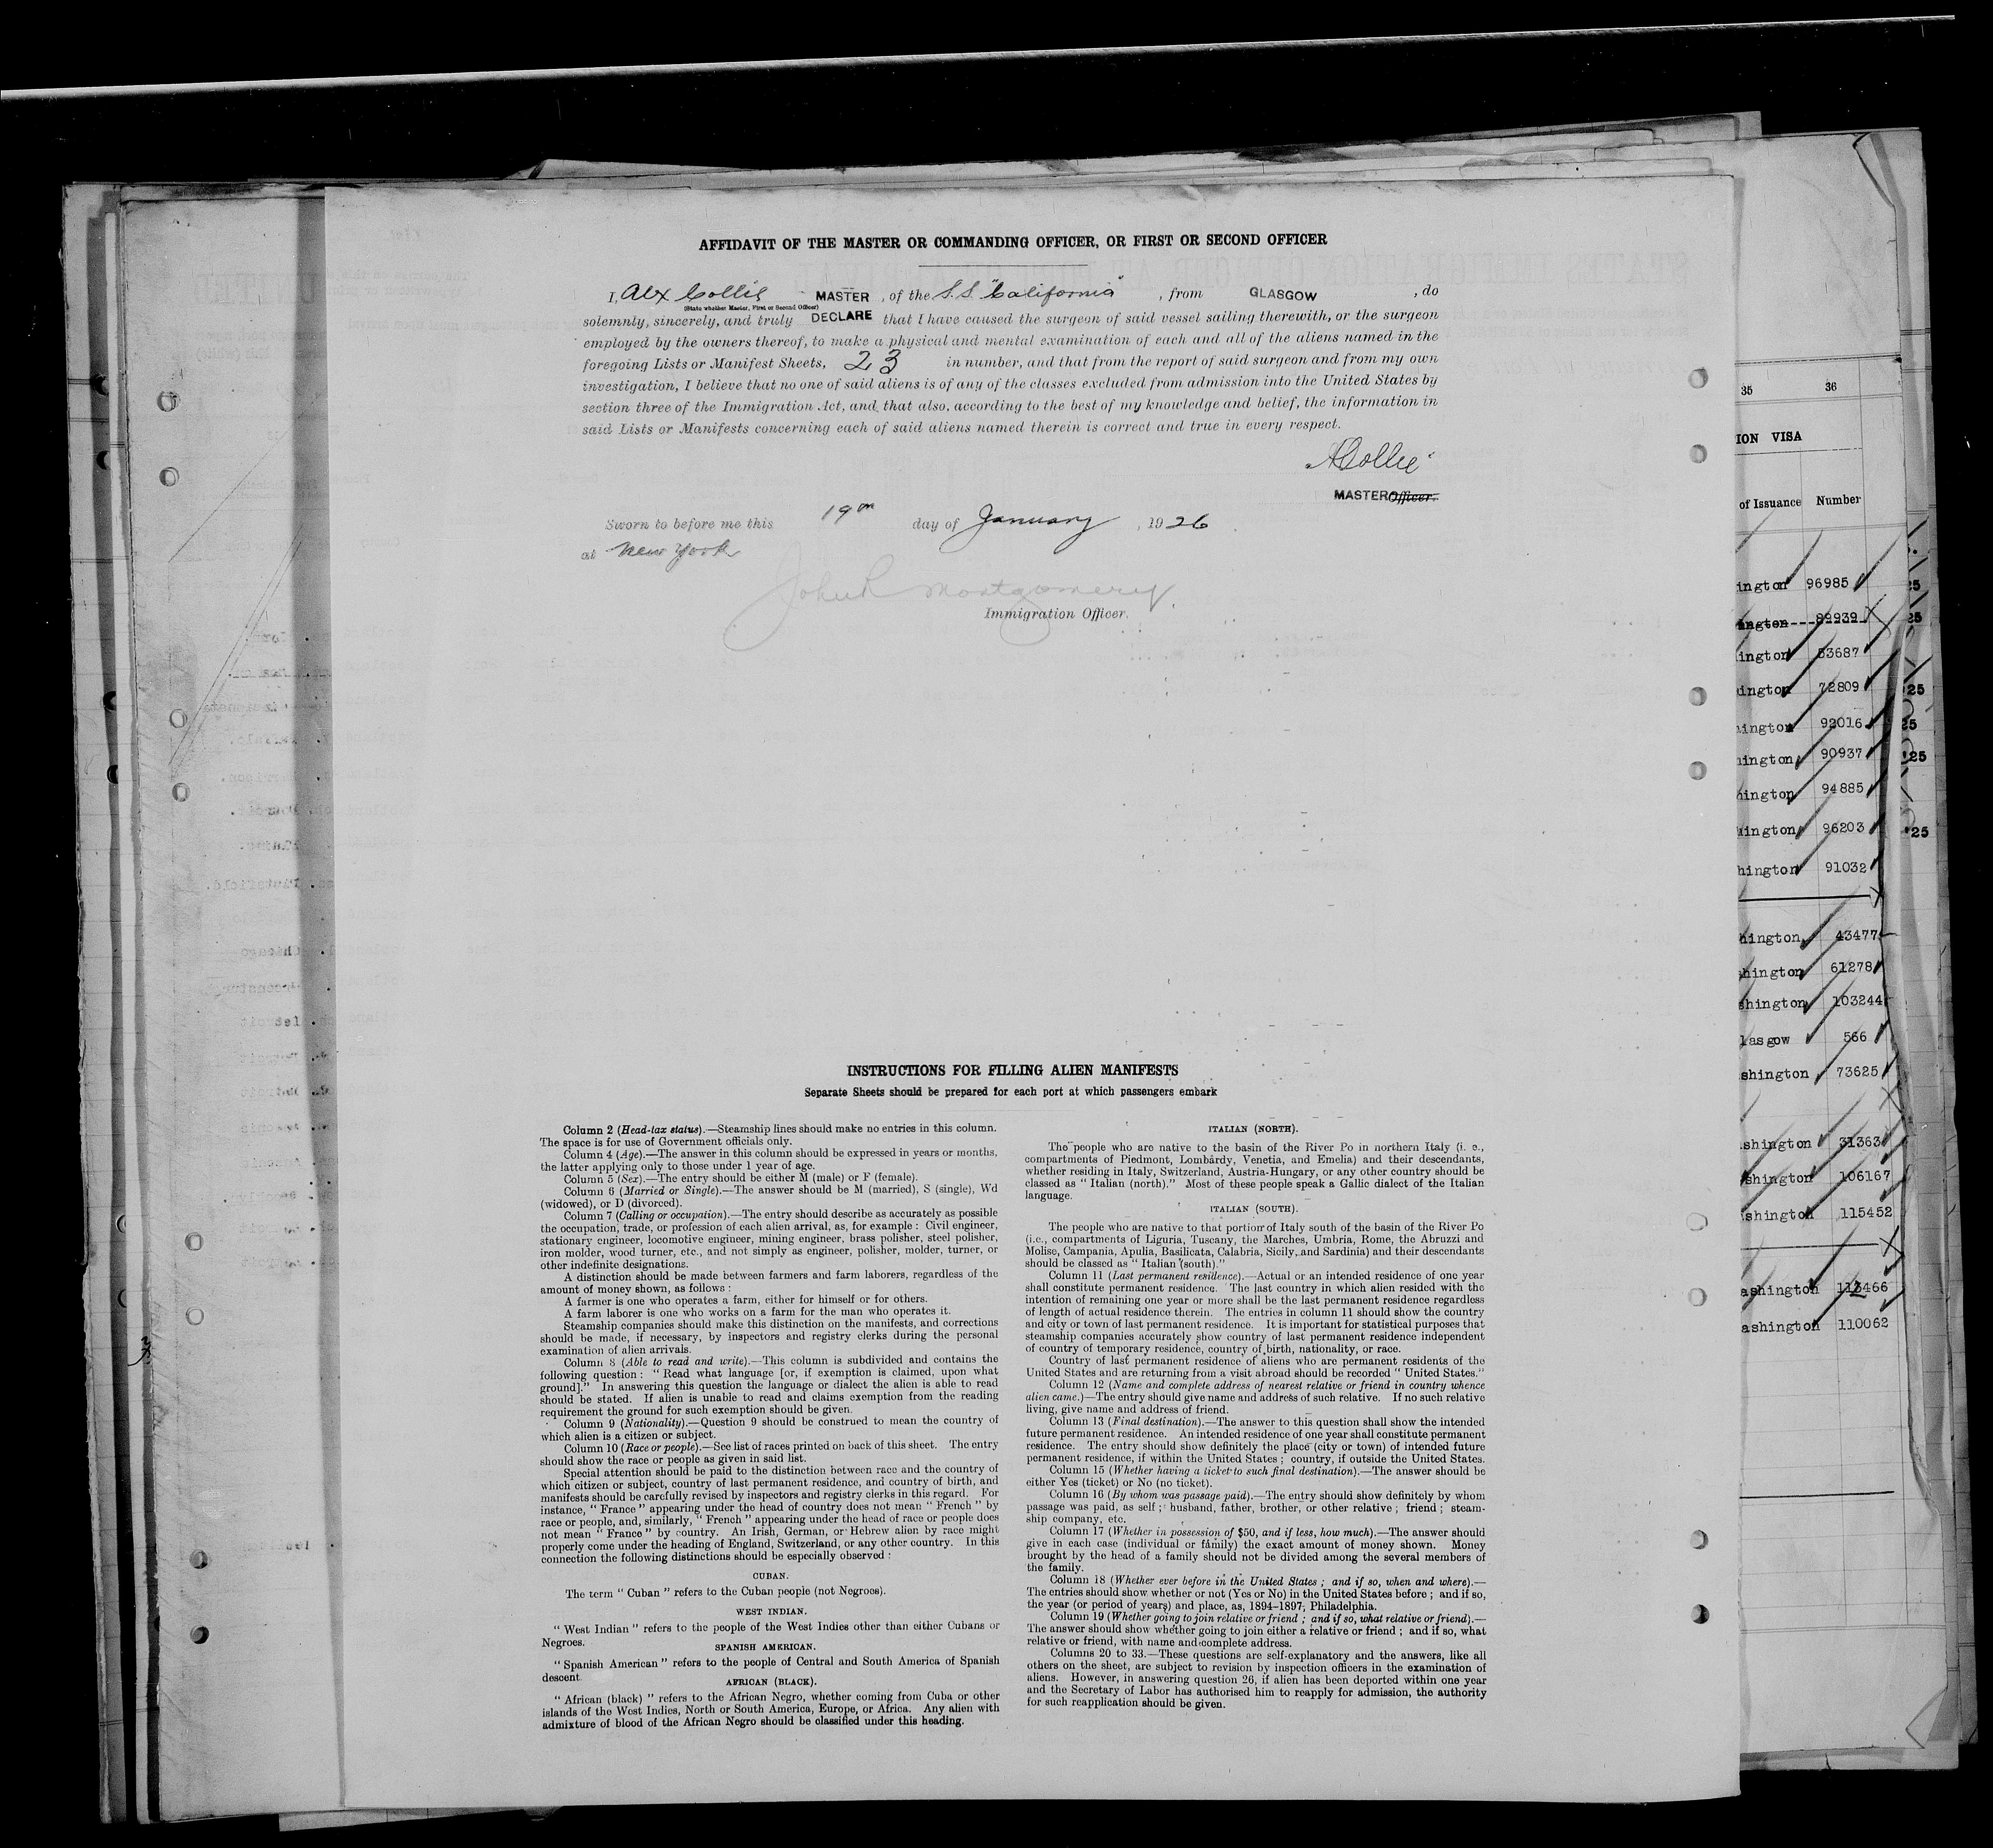 AFFIDAVIT OF THE MASTER OR COMMANDING OFFICER, OR FIRST OR SECOND OFFICER
I, Alex Collie MASTER, of the S.S. "California", from GLASGOW, do
(State whether Master, First or Second Officer)
solemnly, sincerely, and truly DECLARE that I have caused the surgeon of said vessel sailing therewith, or the surgeon
employed by the owners thereof, to make a physical and mental examination of each and all of the aliens named in the
foregoing Lists or Manifest Sheets, 23 in number, and that from the report of said surgeon and from my own
investigation, I believe that no one of said aliens is of any of the classes excluded from admission into the United States by
section three of the Immigration Act, and that also, according to the best of my knowledge and belief, the information in
said Lists or Manifests concerning each of said aliens named therein is correct and true in every respect.
A Collie
MASTER Officer.
Sworn to before me this 19th day of January, 1926
at New York
John R Montgomery
Immigration Officer.
INSTRUCTIONS FOR FILLING ALIEN MANIFESTS
Separate Sheets should be prepared for each port at which passengers embark
Column 2 (Head-tax status).—Steamship lines should make no entries in this column.
The space is for use of Government officials only.
Column 4 (Age).—The answer in this column should be expressed in years or months,
the latter applying only to those under 1 year of age.
Column 5 (Sex).—The entry should be either M (male) or F (female).
Column 6 (Married or Single).—The answer should be M (married), S (single), Wd
(widowed), or D (divorced).
Column 7 (Calling or occupation).—The entry should describe as accurately as possible
the occupation, trade, or profession of each alien arrival, as, for example : Civil engineer,
stationary engineer, locomotive engineer, mining engineer, brass polisher, steel polisher,
iron molder, wood turner, etc., and not simply as engineer, polisher, molder, turner, or
other indefinite designations.
A distinction should be made between farmers and farm laborers, regardless of the
amount of money shown, as follows :
A farmer is one who operates a farm, either for himself or for others.
A farm laborer is one who works on a farm for the man who operates it.
Steamship companies should make this distinction on the manifests, and corrections
should be made, if necessary, by inspectors and registry clerks during the personal
examination of alien arrivals.
Column 8 (Able to read and write).—This column is subdivided and contains the
following question : " Read what language [or, if exemption is claimed, upon what
ground]." In answering this question the language or dialect the alien is able to read
should be stated. If alien is unable to read and claims exemption from the reading
requirement the ground for such exemption should be given.
Column 9 (Nationality).—Question 9 should be construed to mean the country of
which alien is a citizen or subject.
Column 10 (Race or people).—See list of races printed on back of this sheet. The entry
should show the race or people as given in said list.
Special attention should be paid to the distinction between race and the country of
which citizen or subject, country of last permanent residence, and country of birth, and
manifests should be carefully revised by inspectors and registry clerks in this regard. For
instance, " France " appearing under the head of country does not mean " French " by
race or people, and, similarly, " French " appearing under the head of race or people does
not mean " France " by country. An Irish, German, or Hebrew alien by race might
properly come under the heading of England, Switzerland, or any other country. In this
connection the following distinctions should be especially observed :
CUBAN.
The term " Cuban " refers to the Cuban people (not Negroes).
WEST INDIAN.
" West Indian " refers to the people of the West Indies other than either Cubans or
Negroes.
SPANISH AMERICAN.
" Spanish American " refers to the people of Central and South America of Spanish
descent.
AFRICAN (BLACK).
" African (black) " refers to the African Negro, whether coming from Cuba or other
islands of the West Indies, North or South America, Europe, or Africa. Any alien with
admixture of blood of the African Negro should be classified under this heading.
ITALIAN (NORTH).
The people who are native to the basin of the River Po in northern Italy (i. e.,
compartments of Piedmont, Lombardy, Venetia, and Emelia) and their descendants,
whether residing in Italy, Switzerland, Austria-Hungary, or any other country should be
classed as " Italian (north)." Most of these people speak a Gallic dialect of the Italian
language.
ITALIAN (SOUTH).
The people who are native to that portion of Italy south of the basin of the River Po
(i.e., compartments of Liguria, Tuscany, the Marches, Umbria, Rome, the Abruzzi and
Molise, Campania, Apulia, Basilicata, Calabria, Sicily, and Sardinia) and their descendants
should be classed as " Italian (south)."
Column 11 (Last permanent residence).—Actual or an intended residence of one year
shall constitute permanent residence. The last country in which alien resided with the
intention of remaining one year or more shall be the last permanent residence regardless
of length of actual residence therein. The entries in column 11 should show the country
and city or town of last permanent residence. It is important for statistical purposes that
steamship companies accurately show country of last permanent residence independent
of country of temporary residence, country of birth, nationality, or race.
Country of last permanent residence of aliens who are permanent residents of the
United States and are returning from a visit abroad should be recorded " United States."
Column 12 (Name and complete address of nearest relative or friend in country whence
alien came.)—The entry should give name and address of such relative. If no such relative
living, give name and address of friend.
Column 13 (Final destination).—The answer to this question shall show the intended
future permanent residence. An intended residence of one year shall constitute permanent
residence. The entry should show definitely the place (city or town) of intended future
permanent residence, if within the United States ; country, if outside the United States.
Column 15 (Whether having a ticket to such final destination).—The answer should be
either Yes (ticket) or No (no ticket).
Column 16 (By whom was passage paid).—The entry should show definitely by whom
passage was paid, as self ; husband, father, brother, or other relative ; friend ; steam-
ship company, etc.
Column 17 (Whether in possession of $50, and if less, how much).—The answer should
give in each case (individual or family) the exact amount of money shown. Money
brought by the head of a family should not be divided among the several members of
the family.
Column 18 (Whether ever before in the United States ; and if so, when and where).—
The entries should show whether or not (Yes or No) in the United States before ; and if so,
the year (or period of years) and place, as, 1894–1897, Philadelphia.
Column 19 (Whether going to join relative or friend ; and if so, what relative or friend).—
The answer should show whether going to join either a relative or friend ; and if so, what
relative or friend, with name and complete address.
Columns 20 to 33.—These questions are self-explanatory and the answers, like all
others on the sheet, are subject to revision by inspection officers in the examination of
aliens. However, in answering question 26, if alien has been deported within one year
and the Secretary of Labor has authorised him to reapply for admission, the authority
for such reapplication should be given.
35 36
ION VISA
of Issuance Number
ington 96985
ington 89939
ington 53687
ington 72809
ington 92016
ington 90937
hington 94885
hington 96203
hington 91032
hington 43477
shington 61278
shington 103244
lasgow 566
shington 73625
shington 31363
shington 106167
shington 115452
ashington
ashington 110062
25
25
'25
25
'25
'25